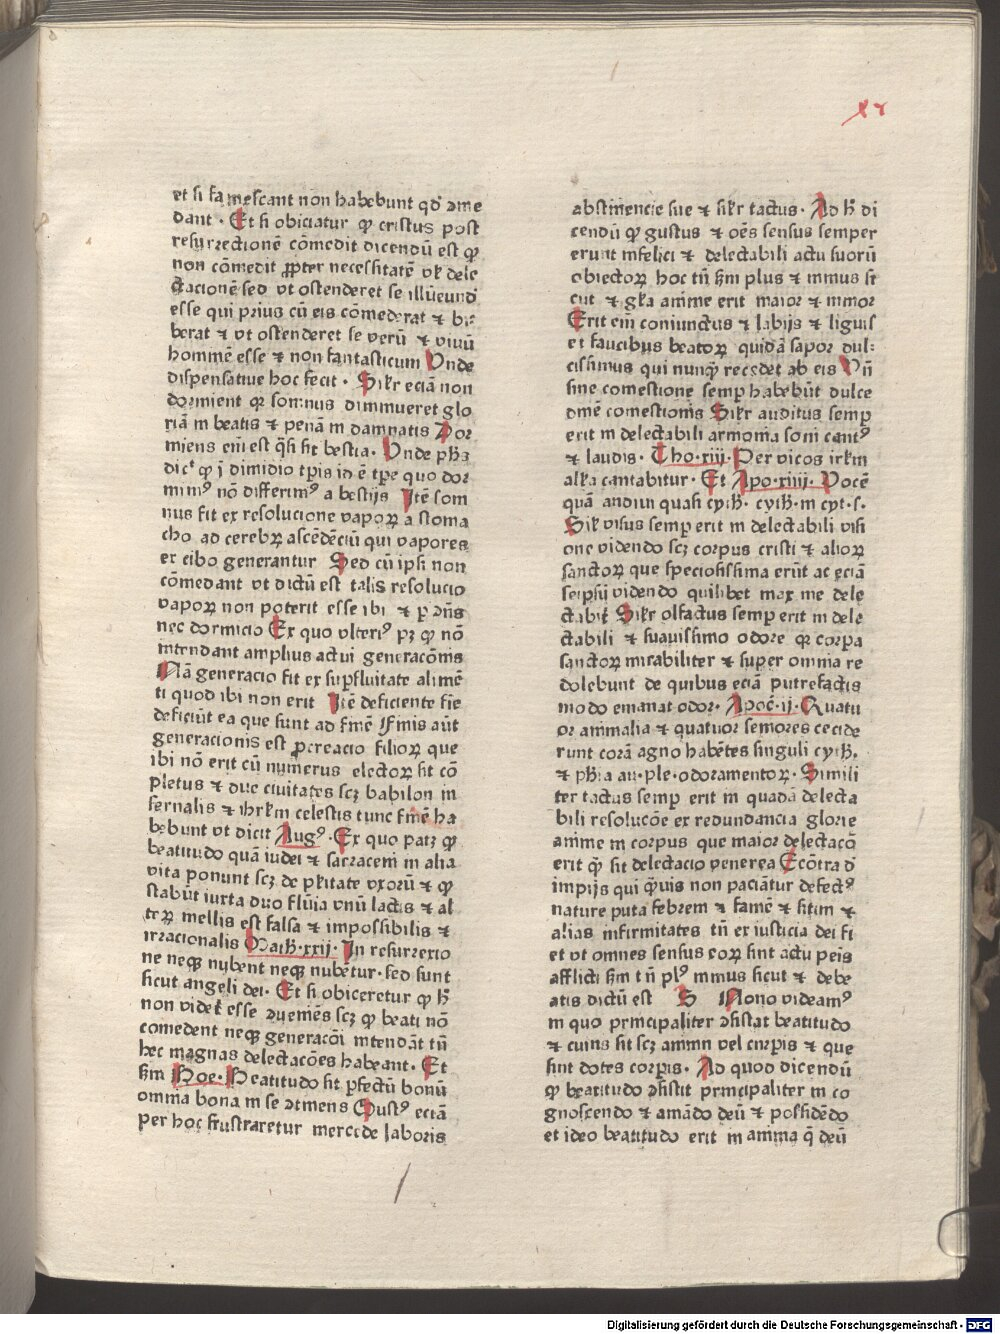 xv
et si famescant non habebunt qd ꝯme
dant · Et si obiciatur ꝙ cristus post
resurrectionē cōmedit dicendū est ꝙ
non cōmedit ꝓpter necessitatē vl̓ dele
ctacionē sed vt ostenderet se illū eund̓
esse qui prius cū eis cōmederat ⁊ bi⸗
berat ⁊ vt ostenderet se verū ⁊ viuū
hominē esse ⁊ non fantasticum Vnde
dispensatiue hoc fecit · Silr eciā non
dormient qr somnus diminueret glo
riā in beatis ⁊ penā in damnatis Dor
miens em̄ est q̄si sit bestia · Vnde ph̓s
dicꝰ ꝙ ī dimidio tp̄is id ē tp̄e quo dor
mimꝰ nō differimꝰ a bestijs Itē som
nus fit ex resolucione vaporꝝ a stoma
cho ad cerebrꝝ ascēdēciū qui vapores
ex cibo generantur Sed cū ipsi non
cōmedant vt dictū est talis resolucio
vaporꝝ non poterit esse ibi ⁊ ꝑ ꝯn̄s
nec dormicio Ex quo vlteriꝰ pꝫ ꝙ nō
intendant amplius actui generacōnis
Nā generacio fit ex suꝑfluitate alimē
ti quod ibi non erit Itē deficiente fīe
deficiūt ea que sunt ad fīnē Sfinis aūt
generacionis est ꝓcreacio filiorꝝ que
ibi nō erit cū numerus electorꝝ sit cō
pletus ⁊ due ciuitates scꝫ babilon in
fernalis ⁊ ihrlm̄ celestis tunc finē ha
bebunt vt dicit Augꝰ · Ex quo patꝫ ꝙ
beatitudo quā iudei ⁊ sarraceni in alia
vita ponunt scꝫ de pl̓itate vxorū ⁊ ꝙ
stabūt iuxta duo flūia vnū lactis ⁊ al
terꝝ mellis est falsa ⁊ impossibilis ⁊
irracionalis Math̓·xxij· In resurrexio
ne neqꝫ nubent neqꝫ nubētur · sed sunt
sicut angeli dei · Et si obiceretur ꝙ h̓
non videt̓ esse ꝯueniēs scꝫ ꝙ beati nō
comedent neqꝫ generacōi intendāt tn̄
hec magnas delectacōes habeant · Et
sm̄ Boe · Beatitudo sit ꝑfectū bonū
omnia bona in se ꝯtinens Gustꝰ eciā
per hoc frustraretur mercede laboris
abstinencie sue ⁊ silr tactus · Ad h̓ di
cendū ꝙ gustus ⁊ oēs sensus semper
erunt infelici ⁊ delectabili actu suorū
obiectorꝝ hoc tn̄ sm̄ plus ⁊ minus si
cut ⁊ gl̓a anime erit maior ⁊ minor
Erit em̄ coniunctus ⁊ labijs ⁊ liguis
et faucibus beatorꝝ quidā sapor dul⸗
cissimus qui nunqꝫ recedet ab eis Vn̄
sine comestione semꝑ habebūt dulce
dinē comestionis Silr auditus semꝑ
erit in delectabili armonia soni cantꝰ
⁊ laudis · Tho·xiii· Per vicos irl̓m
all̓a cantabitur · Et Apo·xiiii· Vocē
quā audiui quasi cyth̓· cyth̓·in cyt·s·
Sil̓ visus semꝑ erit in delectabili visi
one videndo scꝫ corpus cristi ⁊ aliorꝝ
sanctorꝝ que speciosissima erūt ac eciā
seipsū videndo quilibet maxime dele
ctabit̓ Silr olfactus semꝑ erit in dele
ctabili ⁊ suauissimo odore qr corpa
sanctorꝝ mirabiliter ⁊ super omnia re
dolebunt de quibus eciā putrefactis
modo emanat odor · Apoc̄·ij· Quatu
or animalia ⁊ quatuor seniores cecide
runt corā agno habētes singuli cyth̓·
⁊ ph̓ia au·ple·odoramentorꝝ· Simili
ter tactus semꝑ erit in quadā delecta
bili resolucōe ex redundancia glorie
anime in corpus que maior delectacō
erit q̄ sit delectacio venerea Ecōtra d̓
impijs qui q̄uis non paciātur defectꝰ
nature puta febrem ⁊ famē ⁊ sitim ⁊
alias infirmitates tn̄ ex iusticia dei fi
et vt omnes sensus eorꝝ sint actu peis
afflicti sm̄ tn̄ plꝰ minus sicut ⁊ de be
atis dictū est S Nono videamꝰ
in quo principaliter ꝯsistat beatitudo
⁊ cuius sit scꝫ animn vel corpis ⁊ que
sint dotes corpis · Ad quod dicendū
ꝙ beatitudo ꝯsistit principaliter in co
gnoscendo ⁊ amādo deū ⁊ possidēdo
et ideo beatitudo erit in anima q̄ deū
Digitalisierung gefördert durch die Deutsche Forschungsgemeinschaft - DFG